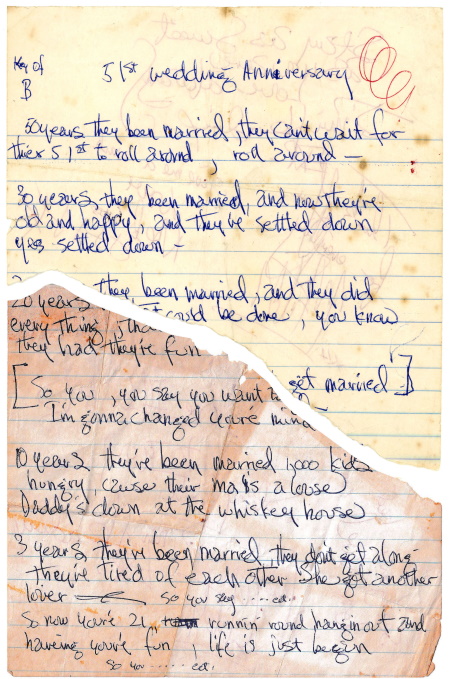 Key of
B
51st wedding Anniversary
50 years they been married, they can't wait for
thier 51st to roll around, roll around —
30 years, they been married, and now they're
old and happy, and they've settled down
yes settled down —
20 years they been married, and they did
every thing, that could be done, you know
they had they're fun
[So you, you say you want to get married]
I'm gonna changed you're mind
10 years they've been married 1,000 kids
hungry, cause their ma's a louse
Daddy's down at the whiskey house
3 years, they've been married, they don't get along
they're tired of each other She got another
lover — So you say ..... ect.
So now you're 21, runnin' round hangin out and
haveing you're fun, life is just begun
So you ..... ect.